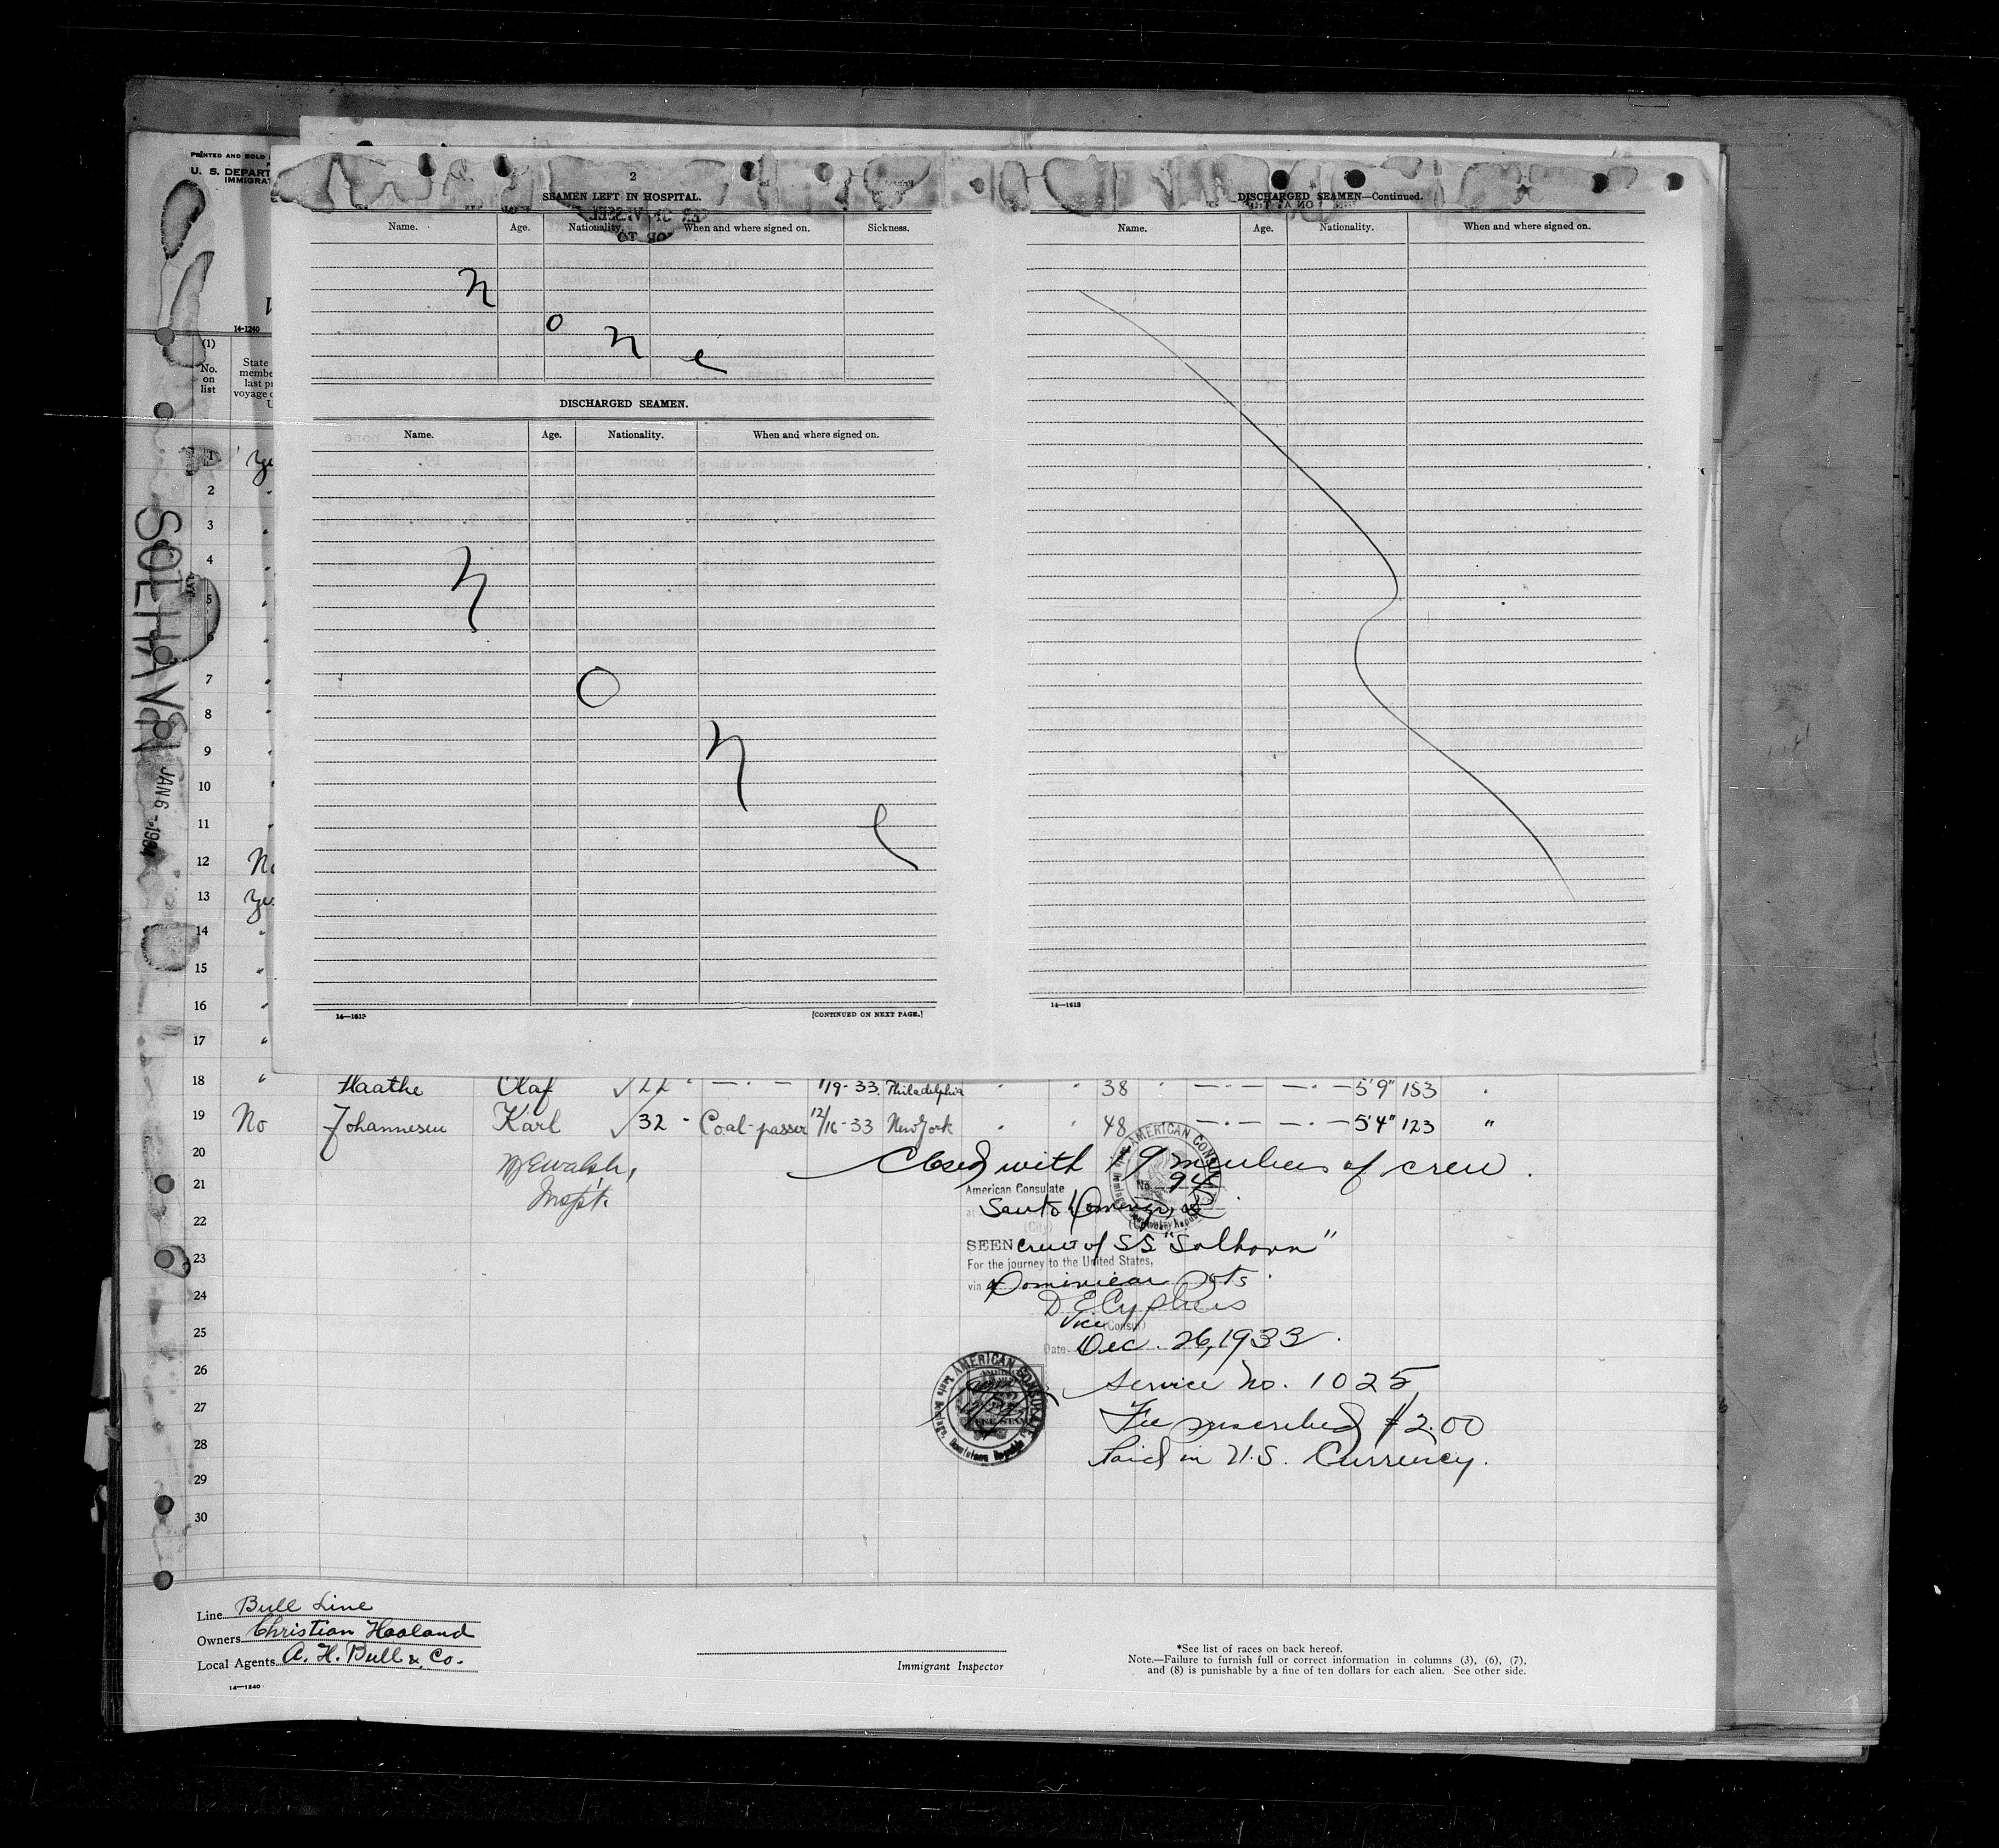 PRINTED AND SOLD
U. S. DEPART
IMMIGRAT
14-1240
(1)
No.
on
list
State
membe
last pr
voyage o
U
2
SEAMEN LEFT IN HOSPITAL.
Name. Age. Nationality. When and where signed on. Sickness.
None
DISCHARGED SEAMEN.
Name. Age. Nationality. When and where signed on.
None
14—1613 [CONTINUED ON NEXT PAGE.]
DISCHARGED SEAMEN—Continued.
Name. Age. Nationality. When and where signed on.
14—1613
SOLHAVN
JAN 6 - 1934
1
2
3
4
5
6
7
8
9
10
11
12 No
13 Yes
14 "
15 "
16 "
17 "
18 " Haathe Olaf 22 " 1/9-33 Philadelphia " " 38 " 5'9" 153 "
19 No Johannesen Karl 32 - Coal-passer 12/16-33 New York " " 48 5'4" 123 "
20 Closed with 19 members of crew.
Walsh,
Inspt.
21
22
23
24
25
26
27
28
29
30
AMERICAN CONSULATE
No. 94
American Consulate
at Santo Domingo,
(City)
SEEN crew of SS "Solhavn"
For the journey to the United States,
via Dominican Pots.
Vice (Consul)
Date Dec. 26, 1933.
AMERICAN CONSULATE
Dominican Republic
Service No. 1025
Fee prescribed $2.00
Paid in U.S. Currency.
Line Bull Line
Owners Christian Haaland
Local Agents A. H. Bull & Co.
14—1240
Immigrant Inspector
*See list of races on back hereof.
Note.—Failure to furnish full or correct information in columns (3), (6), (7),
and (8) is punishable by a fine of ten dollars for each alien. See other side.